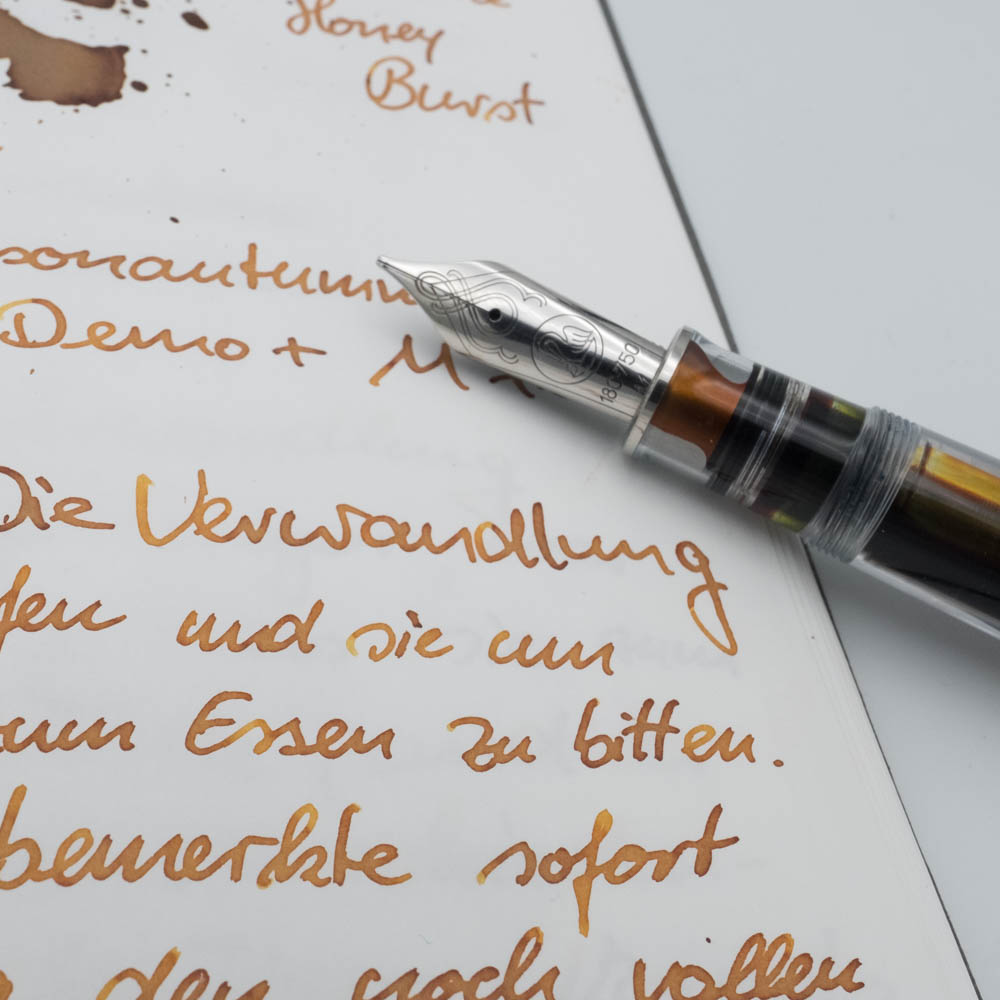 Honey
Burst
sonautumn
Demo + M
Die Verwandlung
fen und sie um
zum Essen zu bitten.
bemerkte sofort
den noch vollen